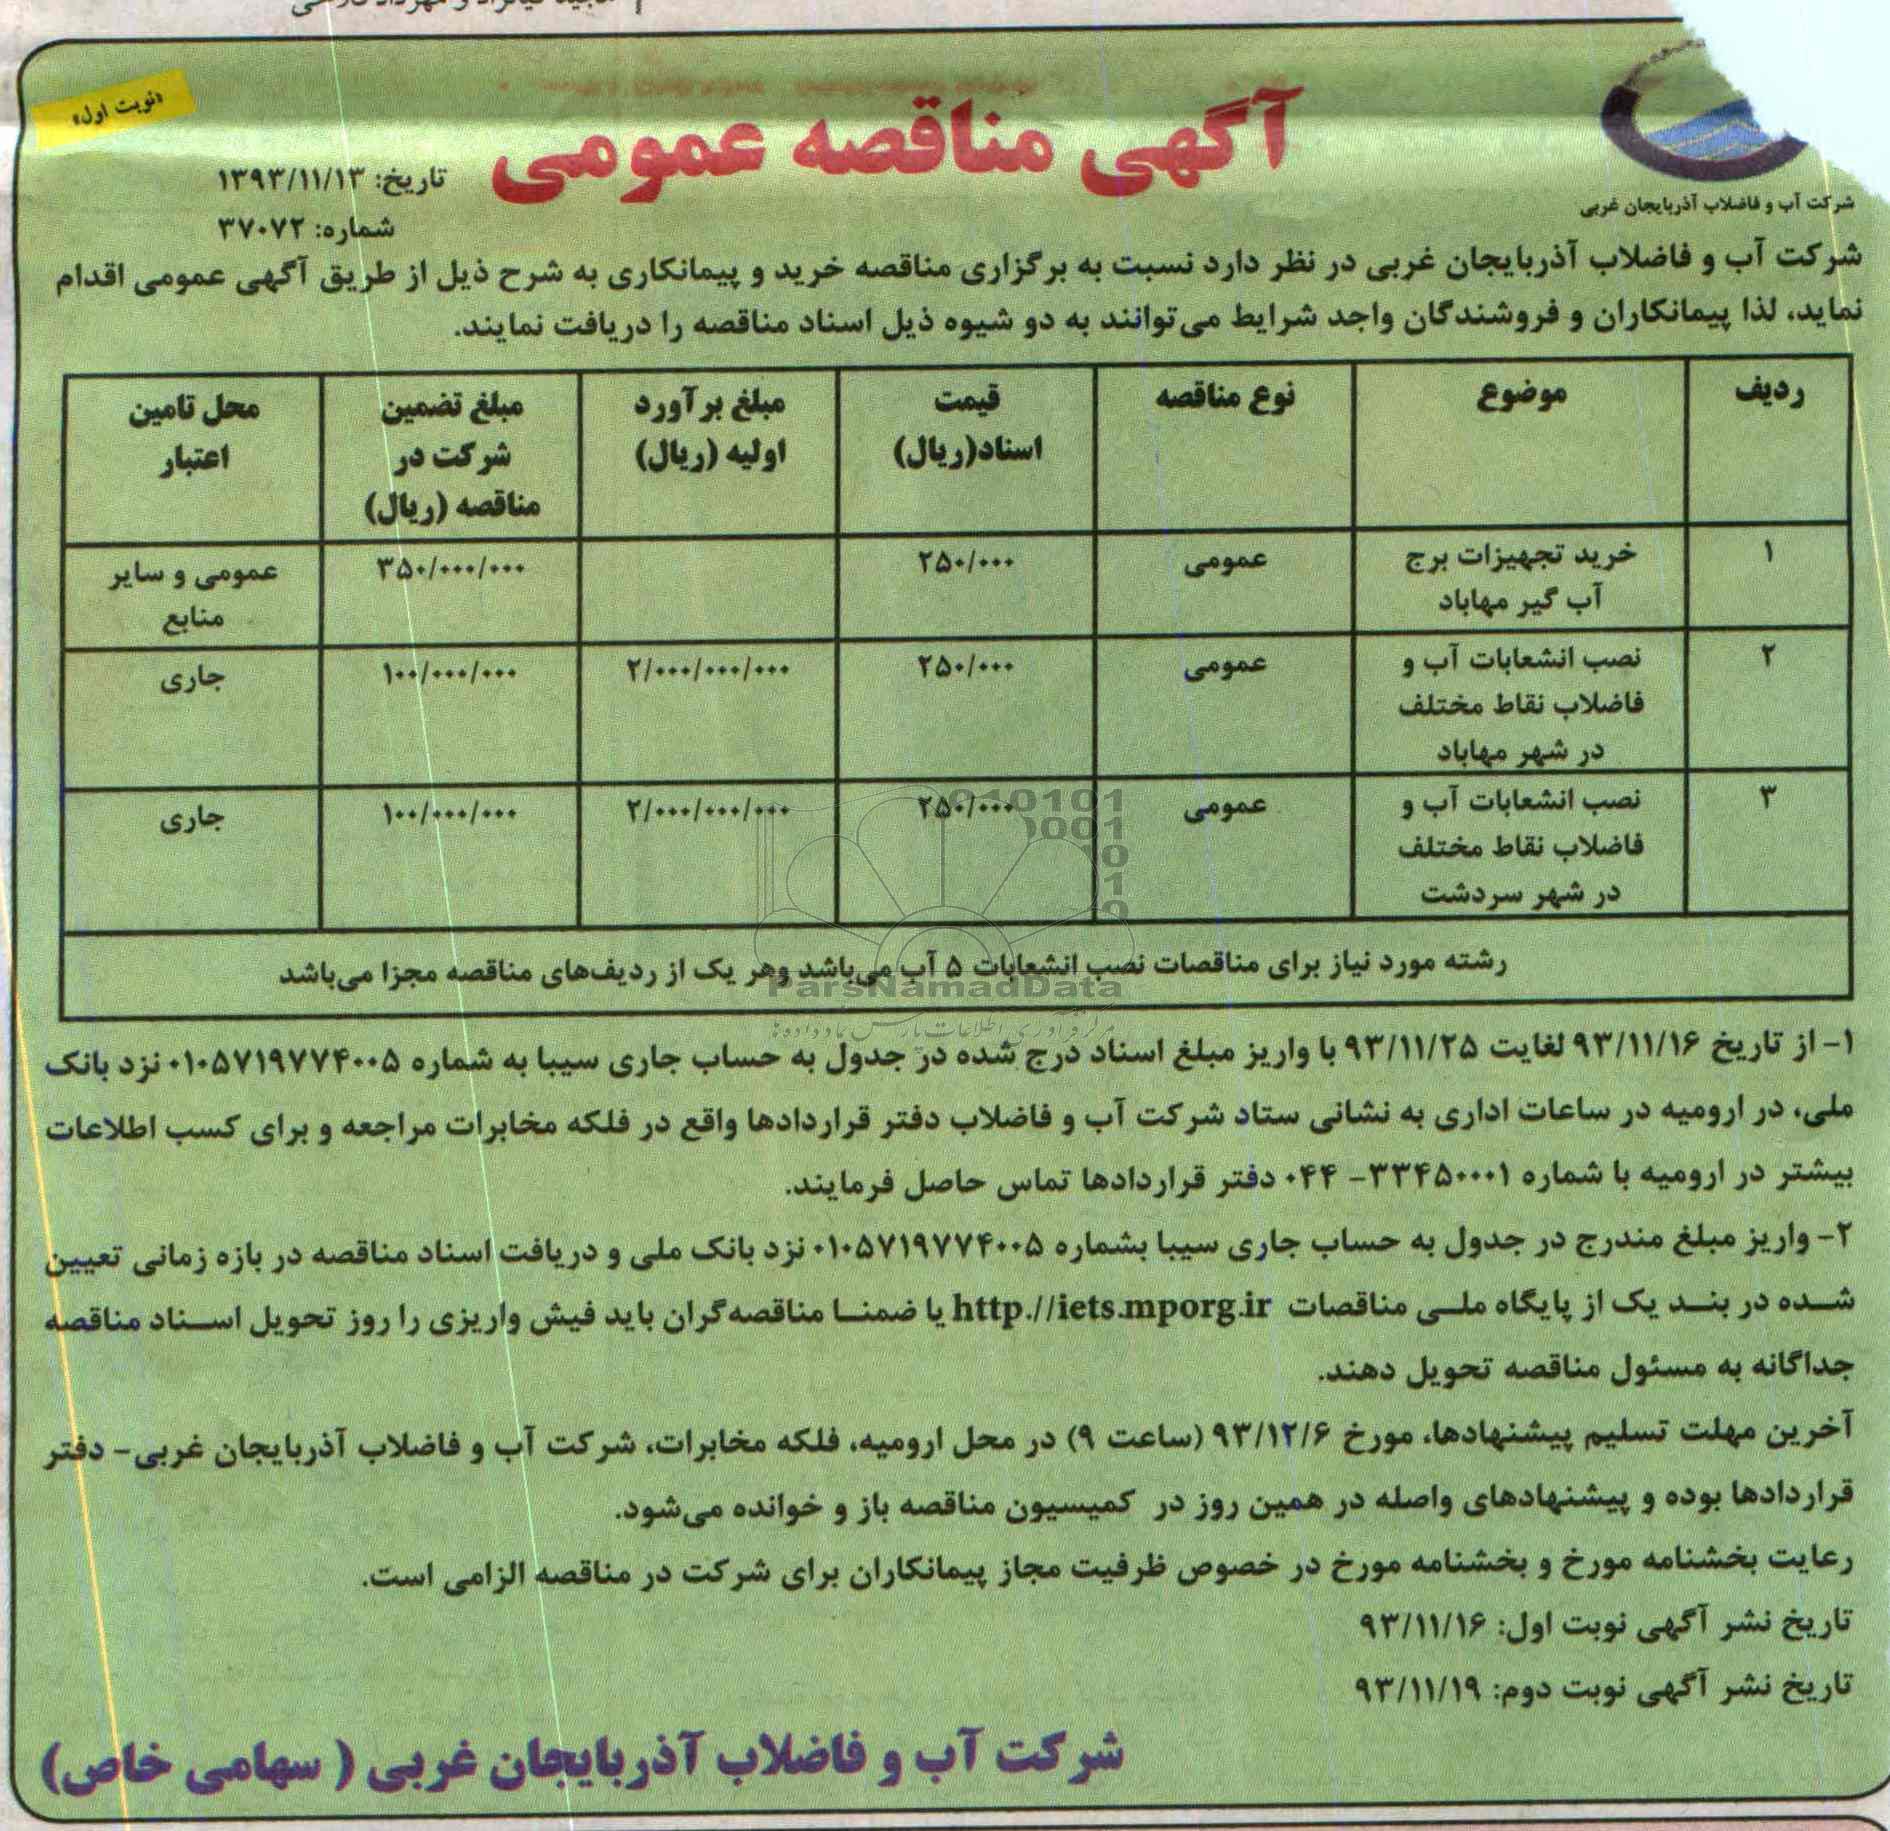 «نوبت اول»
آگهی مناقصه عمومی
شرکت آب و فاضلاب آذربایجان غربی
تاریخ: ۱۳۹۳/۱۱/۱۳
شماره: ۳۷۰۷۲
شرکت آب و فاضلاب آذربایجان غربی در نظر دارد نسبت به برگزاری مناقصه خرید و پیمانکاری به شرح ذیل از طریق آگهی عمومی اقدام
نماید، لذا پیمانکاران و فروشندگان واجد شرایط می‌توانند به دو شیوه ذیل اسناد مناقصه را دریافت نمایند.
ردیف | موضوع | نوع مناقصه | قیمت اسناد(ریال) | مبلغ برآورد اولیه (ریال) | مبلغ تضمین شرکت در مناقصه (ریال) | محل تامین اعتبار
۱ | خرید تجهیزات برج آب گیر مهاباد | عمومی | ۲۵۰/۰۰۰ | | ۳۵۰/۰۰۰/۰۰۰ | عمومی و سایر منابع
۲ | نصب انشعابات آب و فاضلاب نقاط مختلف در شهر مهاباد | عمومی | ۲۵۰/۰۰۰ | ۲/۰۰۰/۰۰۰/۰۰۰ | ۱۰۰/۰۰۰/۰۰۰ | جاری
۳ | نصب انشعابات آب و فاضلاب نقاط مختلف در شهر سردشت | عمومی | ۲۵۰/۰۰۰ | ۲/۰۰۰/۰۰۰/۰۰۰ | ۱۰۰/۰۰۰/۰۰۰ | جاری
رشته مورد نیاز برای مناقصات نصب انشعابات ۵ آب می‌باشد وهر یک از ردیف‌های مناقصه مجزا می‌باشد
ParsNamadData
۱- از تاریخ ۹۳/۱۱/۱۶ لغایت ۹۳/۱۱/۲۵ با واریز مبلغ اسناد درج شده در جدول به حساب جاری سیبا به شماره ۰۱۰۵۷۱۹۷۷۴۰۰۵ نزد بانک
ملی، در ارومیه در ساعات اداری به نشانی ستاد شرکت آب و فاضلاب دفتر قراردادها واقع در فلکه مخابرات مراجعه و برای کسب اطلاعات
بیشتر در ارومیه با شماره ۳۳۴۵۰۰۰۱- ۰۴۴ دفتر قراردادها تماس حاصل فرمایند.
۲- واریز مبلغ مندرج در جدول به حساب جاری سیبا بشماره ۰۱۰۵۷۱۹۷۷۴۰۰۵ نزد بانک ملی و دریافت اسناد مناقصه در بازه زمانی تعیین
شده در بند یک از پایگاه ملی مناقصات http.//iets.mporg.ir یا ضمنا مناقصه‌گران باید فیش واریزی را روز تحویل اسناد مناقصه
جداگانه به مسئول مناقصه تحویل دهند.
آخرین مهلت تسلیم پیشنهادها، مورخ ۹۳/۱۲/۶ (ساعت ۹) در محل ارومیه، فلکه مخابرات، شرکت آب و فاضلاب آذربایجان غربی- دفتر
قراردادها بوده و پیشنهادهای واصله در همین روز در کمیسیون مناقصه باز و خوانده می‌شود.
رعایت بخشنامه مورخ و بخشنامه مورخ در خصوص ظرفیت مجاز پیمانکاران برای شرکت در مناقصه الزامی است.
تاریخ نشر آگهی نوبت اول: ۹۳/۱۱/۱۶
تاریخ نشر آگهی نوبت دوم: ۹۳/۱۱/۱۹
شرکت آب و فاضلاب آذربایجان غربی ( سهامی خاص)